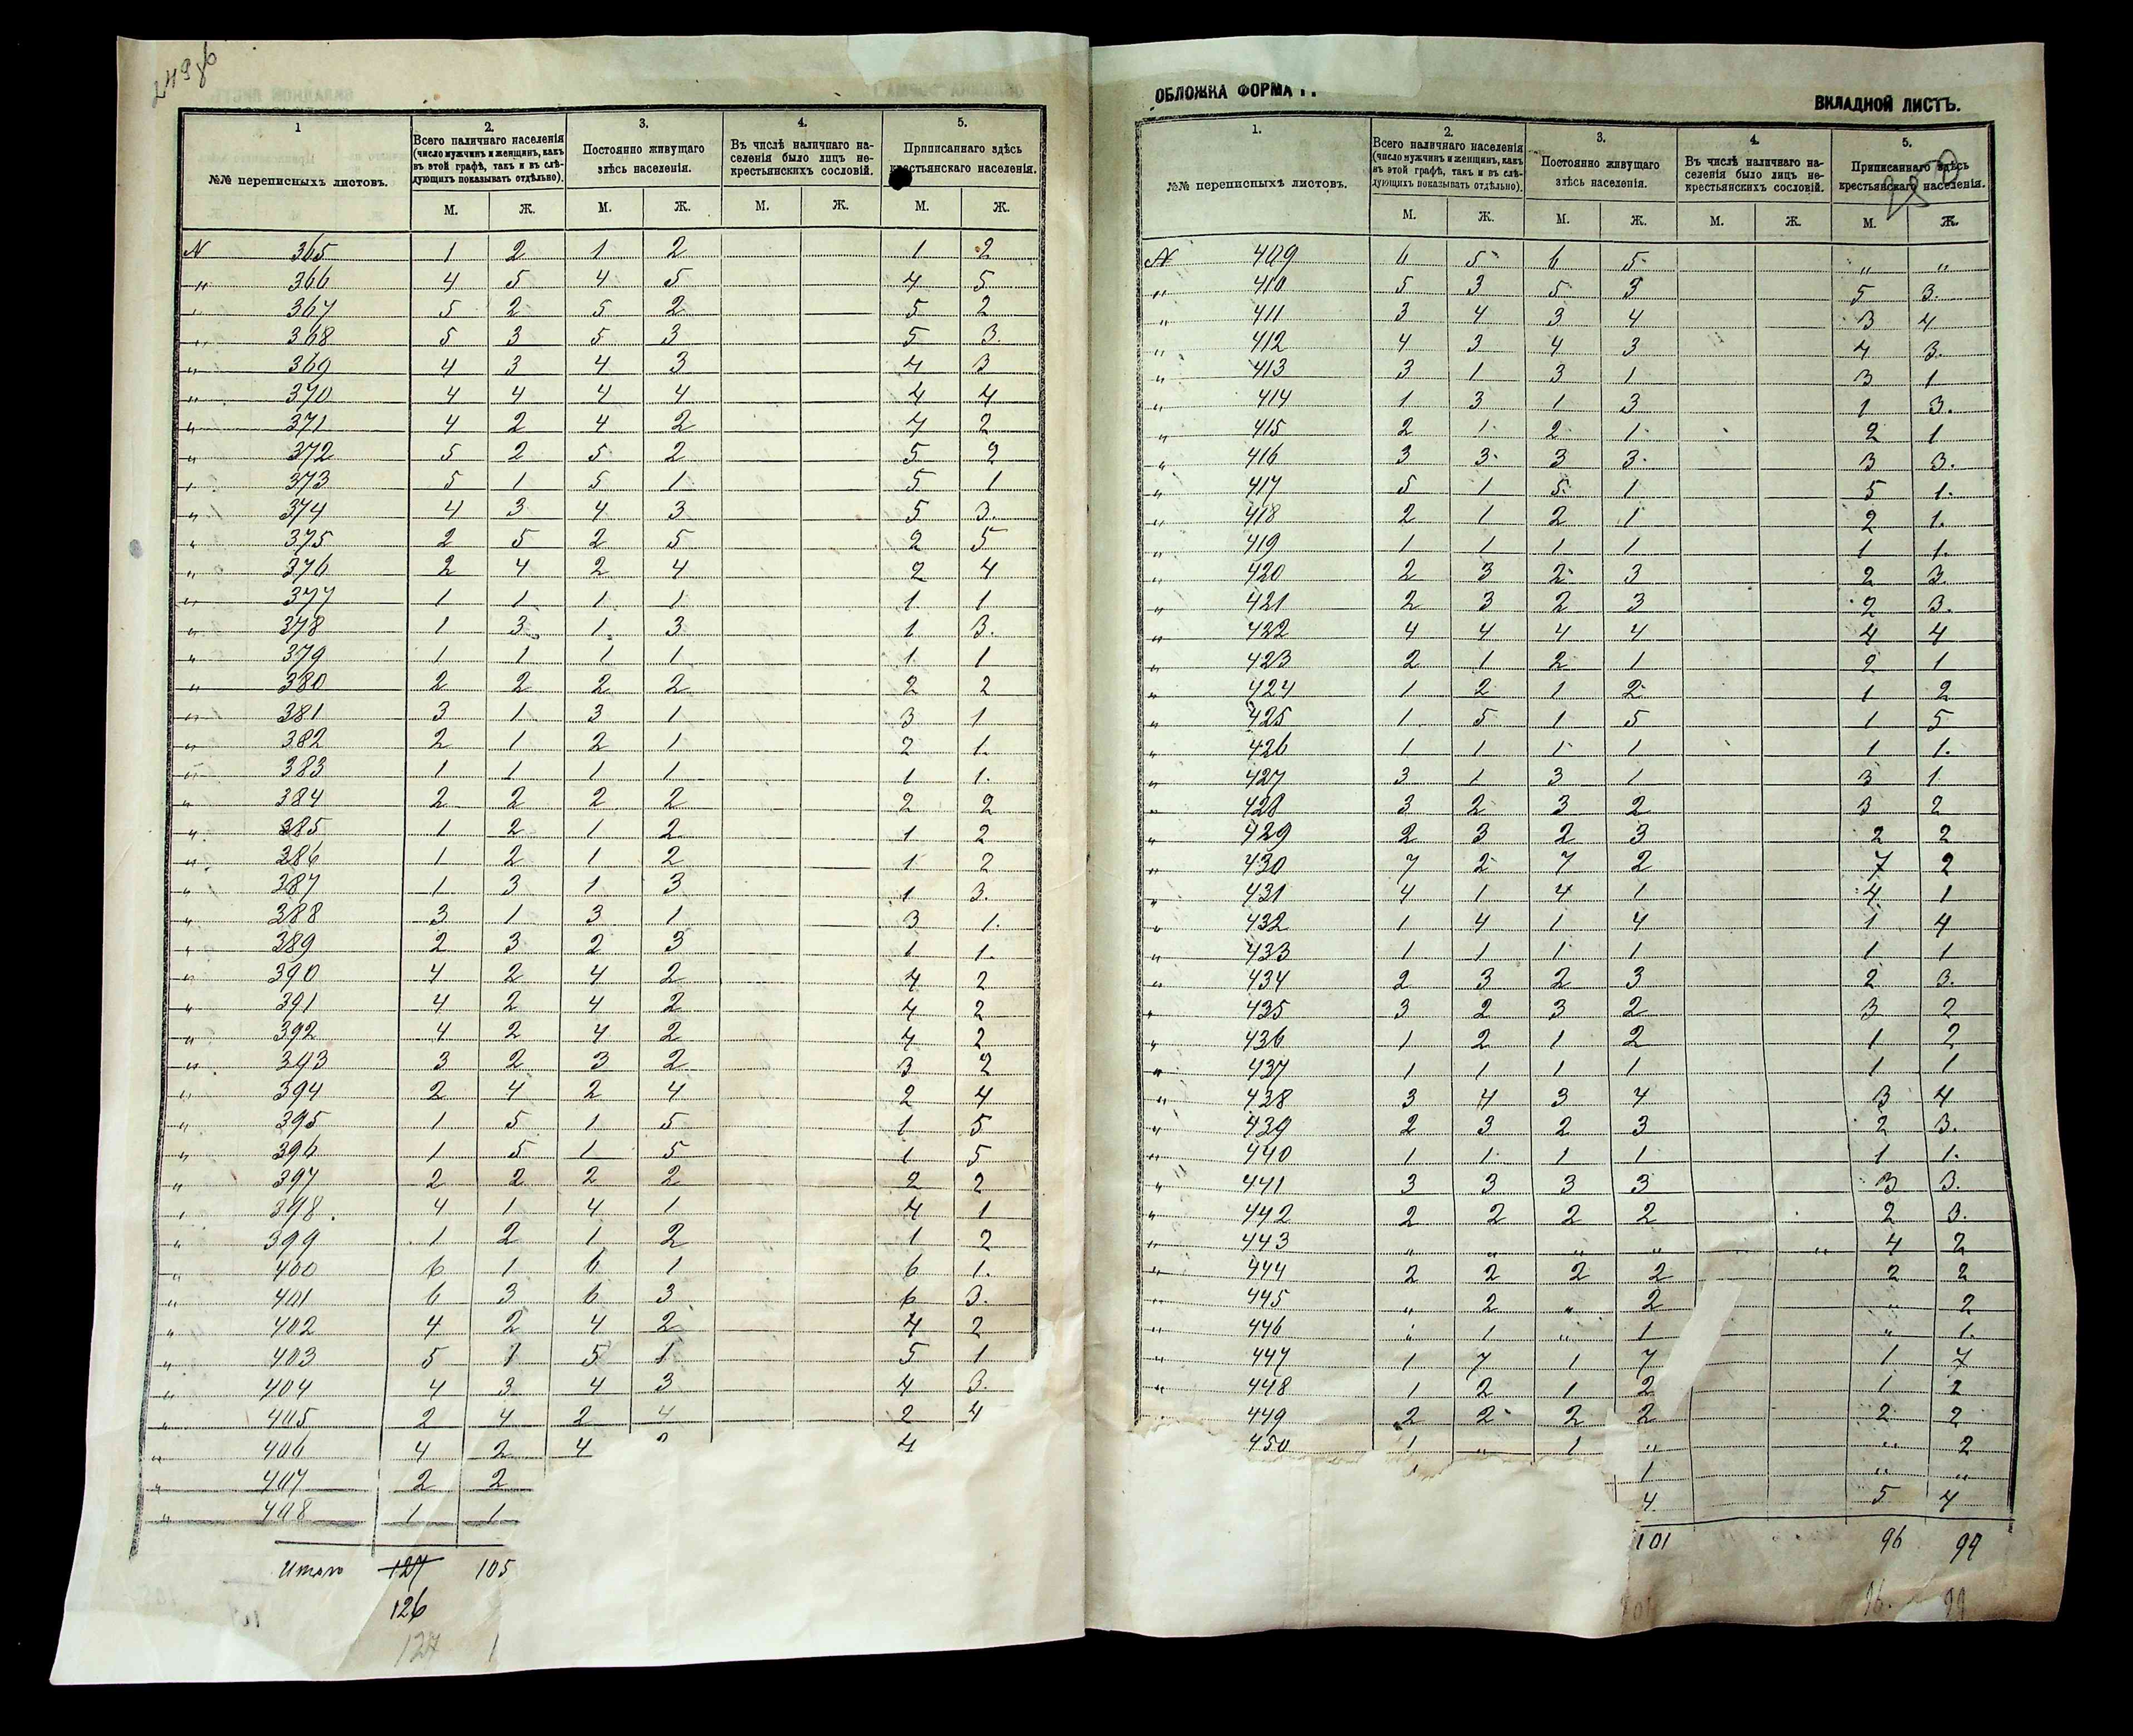 249 об
1 2. 3. 4. 5.
№№ переписныхъ листовъ. Всего наличнаго населенія (число мужчинъ и женщинъ, какъ въ этой графѣ, такъ и въ слѣдующихъ показывать отдѣльно). Постоянно живущаго здѣсь населенія. Въ числѣ наличнаго населенія было лицъ некрестьянскихъ сословій. Приписаннаго здѣсь крестьянскаго населенія.
М. Ж. М. Ж. М. Ж. М. Ж.
№ 365 1 2 1 2 1 2
„ 366 4 5 4 5 4 5
„ 367 5 2 5 2 5 2
„ 368 5 3 5 3 5 3.
„ 369 4 3 4 3 4 3
„ 370 4 4 4 4 4 4
„ 371 4 2 4 2 4 2
„ 372 5 2 5 2 5 2
„ 373 5 1 5 1 5 1
„ 374 4 3 4 3 5 3.
„ 375 2 5 2 5 2 5
„ 376 2 4 2 4 2 4
„ 377 1 1 1 1 1 1
„ 378 1 3 1 3 1 3.
„ 379 1 1 1 1 1 1
„ 380 2 2 2 2 2 2
„ 381 3 1 3 1 3 1
„ 382 2 1 2 1 2 1.
„ 383 1 1 1 1 1 1.
„ 384 2 2 2 2 2 2
„ 385 1 2 1 2 1 2
„ 386 1 2 1 2 1 2
„ 387 1 3 1 3 1 3.
„ 388 3 1 3 1 3 1.
„ 389 2 3 2 3 1 1.
„ 390 4 2 4 2 4 2
„ 391 4 2 4 2 4 2
„ 392 4 2 4 2 4 2
„ 393 3 2 3 2 3 2
„ 394 2 4 2 4 2 4
„ 395 1 5 1 5 1 5
„ 396 1 5 1 5 1 5
„ 397 2 2 2 2 2 2
„ 398. 4 1 4 1 4 1
„ 399 1 2 1 2 1 2
„ 400 6 1 6 1 6 1.
„ 401 6 3 6 3 6 3.
„ 402 4 2 4 2 4 2
„ 403 5 1 5 1 5 1
„ 404 4 3 4 3 4 3.
„ 405 2 4 2 4 2 4
„ 406 4 2 4 4
„ 407 2 2
„ 408 1 1
Итого 127 105
126
127 1
ОБЛОЖКА ФОРМА
ВКЛАДНОЙ ЛИСТЪ.
250
1. 2. 3. 4. 5.
№№ переписныхъ листовъ. Всего наличнаго населенія (число мужчинъ и женщинъ, какъ въ этой графѣ, такъ и въ слѣдующихъ показывать отдѣльно). Постоянно живущаго здѣсь населенія. Въ числѣ наличнаго населенія было лицъ некрестьянскихъ сословій. Приписаннаго здѣсь крестьянскаго населенія.
М. Ж. М. Ж. М. Ж. М. Ж.
№ 409 6 5 6 5 „ „
„ 410 5 3 5 3 5 3.
„ 411 3 4 3 4 3 4
„ 412 4 3 4 3 4 3.
„ 413 3 1 3 1 3 1
„ 414 1 3 1 3 1 3.
„ 415 2 1 2 1 2 1
„ 416 3 3 3 3 3 3.
„ 417 5 1 5 1 5 1.
„ 418 2 1 2 1 2 1.
„ 419 1 1 1 1 1 1.
„ 420 2 3 2 3 2 3.
„ 421 2 3 2 3 2 3.
„ 422 4 4 4 4 4 4
„ 423 2 1 2 1 2 1
„ 424 1 2 1 2 1 2
„ 425 1 5 1 5 1 5
„ 426 1 1 1 1 1 1.
„ 427 3 1 3 1 3 1
„ 428 3 2 3 2 3 2
„ 429 2 3 2 3 2 2
„ 430 7 2 7 2 7 2
„ 431 4 1 4 1 4 1
„ 432 1 4 1 4 1 4
„ 433 1 1 1 1 1 1
„ 434 2 3 2 3 2 3.
„ 435 3 2 3 2 3 2
„ 436 1 2 1 2 1 2
„ 437 1 1 1 1 1 1
„ 438 3 4 3 4 3 4
„ 439 2 3 2 3 2 3.
„ 440 1 1 1 1 1 1.
„ 441 3 3 3 3 3 3.
„ 442 2 2 2 2 2 3.
„ 443 „ „ „ „ „ „ 4 2
„ 444 2 2 2 2 2 2
„ 445 „ 2 „ 2 „ 2
„ 446 „ 1 „ 1 „ 1.
„ 447 1 7 1 7 1 7
„ 448 1 2 1 2 1 2
„ 449 2 2 2 2 2 2
450 1 „ 1 „ „ 2
1 „ „
4 5 4
101 96 99
101 96. 99